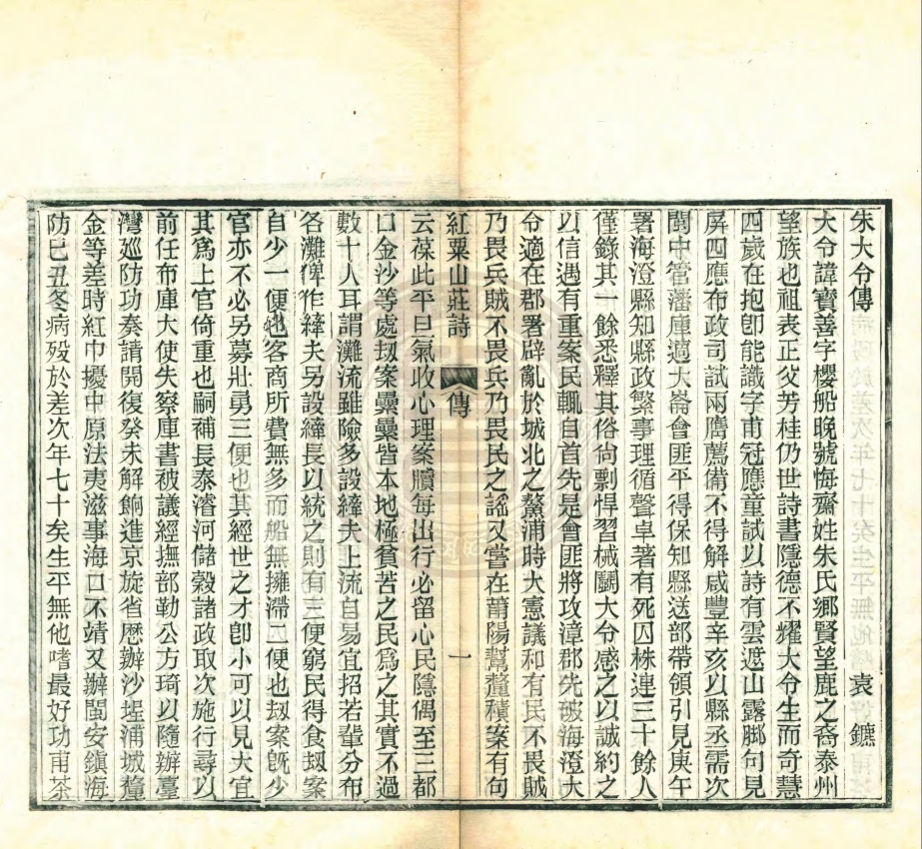 朱大令傳　袁鑣
大令諱寶善字櫻船晚號悔齋姓朱氏鄉賢望鹿之裔泰州
望族也祖表正父芳桂仍世詩書隱德不耀大令生而奇慧
四歲在抱卽能識字甫冠應童試以詩有雲遮山露腳句見
屏四應布政司試兩膺薦備不得解咸豐辛亥以縣丞需次
閩中管藩庫適大崙會匪平得保知縣送部帶領引見庚午
署海澄縣知縣政繁事理循聲卓著有死囚株連三十餘人
僅錄其一餘悉釋其俗尙剽悍習械鬭大令感之以誠約之
以信遇有重案民輒自首先是會匪將攻漳郡先破海澄大
令適在郡署辟亂於城北之鰲浦時大憲議和有民不畏賊
乃畏兵賊不畏兵乃畏民之謠又嘗在莆陽幫釐積案有句
紅粟山莊詩　傳　一
云葆此平旦氣收心理案牘每出行必留心民隱偶至三都
口金沙等處刼案纍纍皆本地極貧苦之民爲之其實不過
數十人耳謂灘流雖險多設縴夫上流自易宜招若輩分布
各灘俾作縴夫另設縴長以統之則有三便窮民得食刼案
自少一便也客商所費無多而船無擁滯二便也刼案旣少
官亦不必另募壯勇三便也其經世之才卽小可以見大宜
其爲上官倚重也嗣補長泰濬河儲穀諸政取次施行尋以
前任布庫大使失察庫書被議經撫部勒公方琦以隨辦臺
灣廵防功奏請開復癸未解餉進京旋省歷辦沙埕浦城釐
金等差時紅巾擾中原法夷滋事海口不靖又辦閩安鎭海
防巳丑冬病殁於差次年七十矣生平無他嗜最好功甫茶